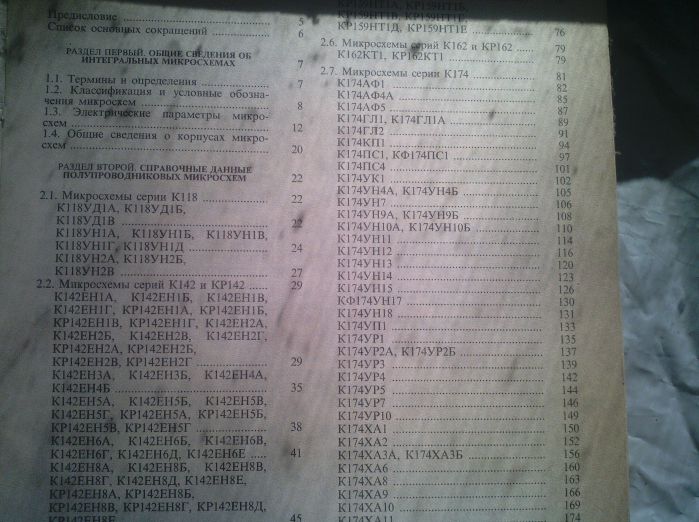 Предисловие 5
Список основных сокращений 6
РАЗДЕЛ ПЕРВЫЙ. ОБЩИЕ СВЕДЕНИЯ ОБ
ИНТЕГРАЛЬНЫХ МИКРОСХЕМАХ 7
1.1. Термины и определения 7
1.2. Классификация и условные обозна-
чения микросхем 8
1.3. Электрические параметры микро-
схем 12
1.4. Общие сведения о корпусах микро-
схем 20
РАЗДЕЛ ВТОРОЙ. СПРАВОЧНЫЕ ДАННЫЕ
ПОЛУПРОВОДНИКОВЫХ МИКРОСХЕМ 22
2.1. Микросхемы серии К118 22
К118УД1А, К118УД1Б,
К118УД1В 22
К118УН1А, К118УН1Б, К118УН1В,
К118УН1Г, К118УН1Д 24
К118УН2А, К118УН2Б,
К118УН2В 27
2.2. Микросхемы серий К142 и КР142 29
К142ЕН1А, К142ЕН1Б, К142ЕН1В,
К142ЕН1Г, КР142ЕН1А, КР142ЕН1Б,
КР142ЕН1В, КР142ЕН1Г, К142ЕН2А,
К142ЕН2Б, К142ЕН2В, К142ЕН2Г,
КР142ЕН2А, КР142ЕН2Б,
КР142ЕН2В, КР142ЕН2Г 29
К142ЕН3А, К142ЕН3Б, К142ЕН4А,
К142ЕН4Б 35
К142ЕН5А, К142ЕН5Б, К142ЕН5В,
К142ЕН5Г, КР142ЕН5А, КР142ЕН5Б,
КР142ЕН5В, КР142ЕН5Г 38
К142ЕН6А, К142ЕН6Б, К142ЕН6В,
К142ЕН6Г, К142ЕН6Д, К142ЕН6Е 41
К142ЕН8А, К142ЕН8Б, К142ЕН8В,
К142ЕН8Г, К142ЕН8Д, К142ЕН8Е,
КР142ЕН8А, КР142ЕН8Б,
КР142ЕН8В, КР142ЕН8Г, КР142ЕН8Д,
КР142ЕН8Е 45
КР159НТ1А, КР159НТ1Б,
КР159НТ1В, КР159НТ1Г,
КР159НТ1Д, КР159НТ1Е 76
2.6. Микросхемы серий К162 и КР162 79
К162КТ1, КР162КТ1 79
2.7. Микросхемы серии К174 81
К174АФ1 82
К174АФ4А 85
К174АФ5 87
К174ГЛ1, К174ГЛ1А 89
К174ГЛ2 91
К174КП1 94
К174ПС1, КФ174ПС1 97
К174ПС4 101
К174УК1 102
К174УН4А, К174УН4Б 105
К174УН7 106
К174УН9А, К174УН9Б 108
К174УН10А, К174УН10Б 110
К174УН11 114
К174УН12 116
К174УН13 120
К174УН14 123
К174УН15 126
КФ174УН17 130
К174УН18 131
К174УП1 133
К174УР1 135
К174УР2А, К174УР2Б 137
К174УР3 139
К174УР4 142
К174УР5 144
К174УР7 146
К174УР10 149
К174ХА1 150
К174ХА2 152
К174ХА3А, К174ХА3Б 156
К174ХА6 160
К174ХА8 163
К174ХА9 166
К174ХА10 169
К174ХА11 174